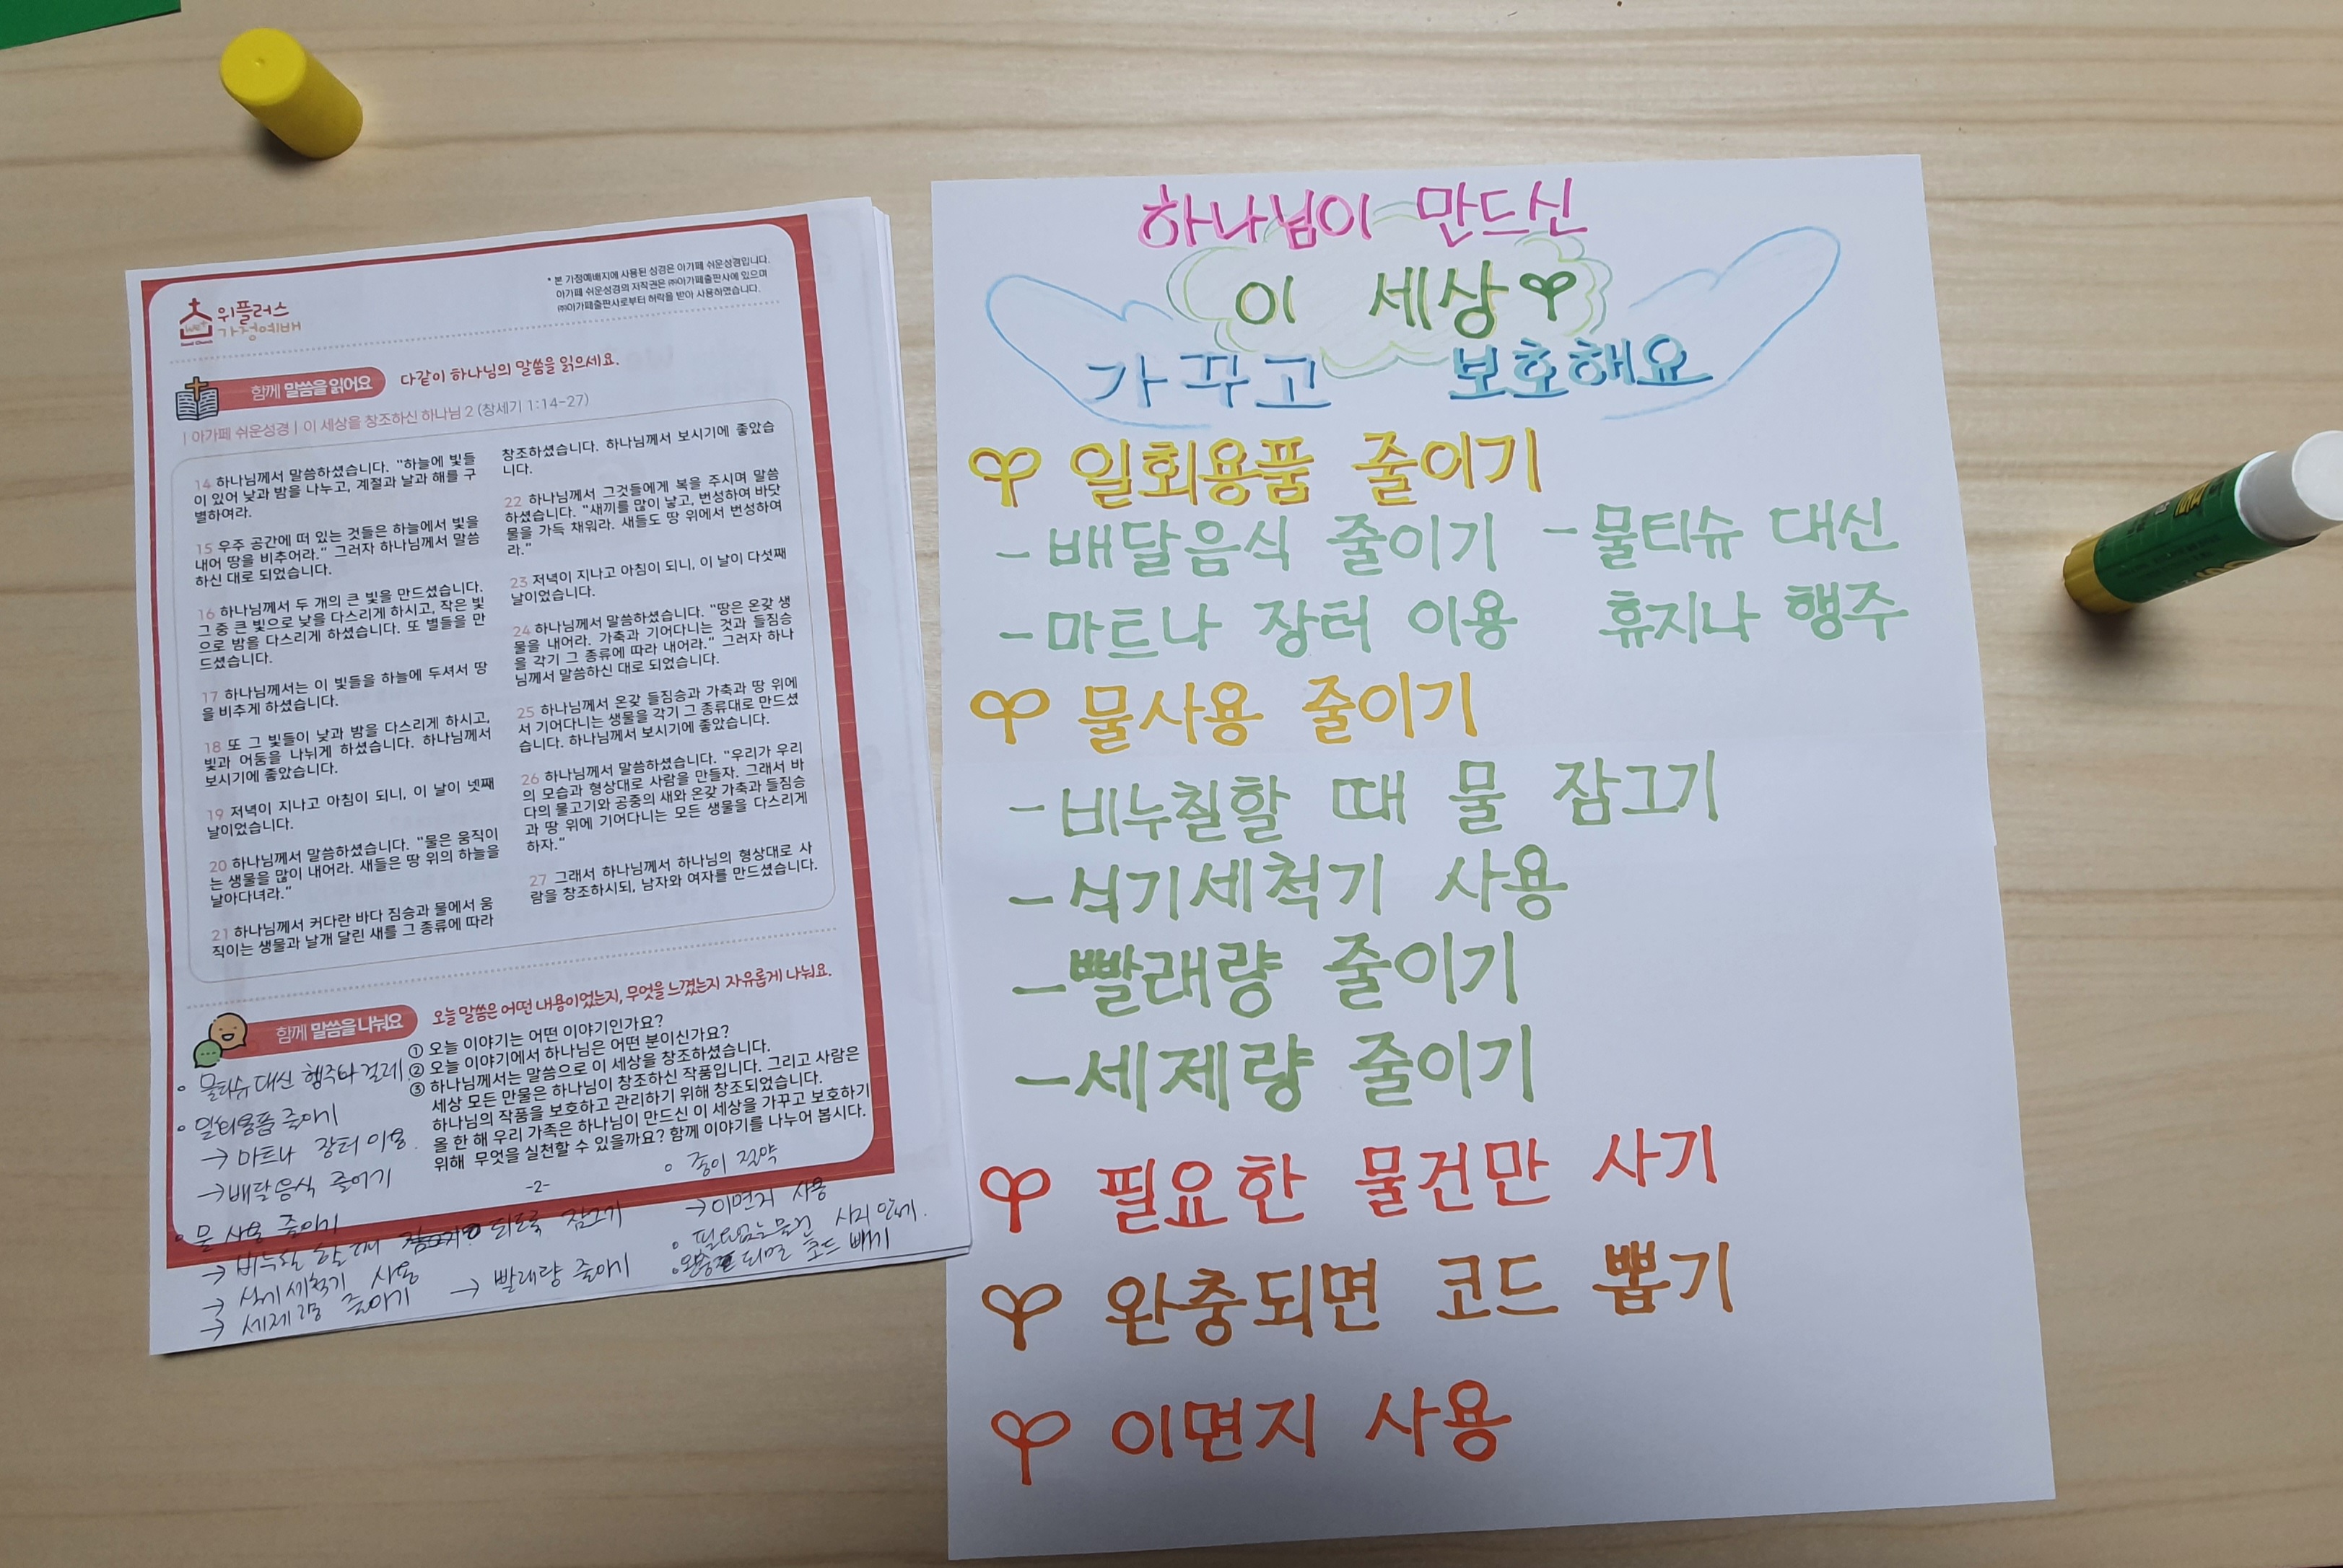 위플러스
가정예배
* 본 가정예배지에 사용된 성경은 아가페 쉬운성경입니다.
아가페 쉬운성경의 저작권은 ㈜아가페출판사에 있으며
㈜아가페출판사로부터 허락을 받아 사용하였습니다.
함께 말씀을 읽어요
다같이 하나님의 말씀을 읽으세요.
| 아가페 쉬운성경 | 이 세상을 창조하신 하나님 2 (창세기 1:14-27)
14 하나님께서 말씀하셨습니다. "하늘에 빛들
이 있어 낮과 밤을 나누고, 계절과 날과 해를 구
별하여라.
15 우주 공간에 떠 있는 것들은 하늘에서 빛을
내어 땅을 비추어라." 그러자 하나님께서 말씀
하신 대로 되었습니다.
16 하나님께서 두 개의 큰 빛을 만드셨습니다.
그 중 큰 빛으로 낮을 다스리게 하시고, 작은 빛
으로 밤을 다스리게 하셨습니다. 또 별들을 만
드셨습니다.
17 하나님께서는 이 빛들을 하늘에 두셔서 땅
을 비추게 하셨습니다.
18 또 그 빛들이 낮과 밤을 다스리게 하시고,
빛과 어둠을 나뉘게 하셨습니다. 하나님께서
보시기에 좋았습니다.
19 저녁이 지나고 아침이 되니, 이 날이 넷째
날이었습니다.
20 하나님께서 말씀하셨습니다. "물은 움직이
는 생물을 많이 내어라. 새들은 땅 위의 하늘을
날아다녀라."
21 하나님께서 커다란 바다 짐승과 물에서 움
직이는 생물과 날개 달린 새를 그 종류에 따라
창조하셨습니다. 하나님께서 보시기에 좋았습
니다.
22 하나님께서 그것들에게 복을 주시며 말씀
하셨습니다. "새끼를 많이 낳고, 번성하여 바닷
물을 가득 채워라. 새들도 땅 위에서 번성하여
라."
23 저녁이 지나고 아침이 되니, 이 날이 다섯째
날이었습니다.
24 하나님께서 말씀하셨습니다. "땅은 온갖 생
물을 내어라. 가축과 기어다니는 것과 들짐승
을 각기 그 종류에 따라 내어라." 그러자 하나
님께서 말씀하신 대로 되었습니다.
25 하나님께서 온갖 들짐승과 가축과 땅 위에
서 기어다니는 생물을 각기 그 종류대로 만드셨
습니다. 하나님께서 보시기에 좋았습니다.
26 하나님께서 말씀하셨습니다. "우리가 우리
의 모습과 형상대로 사람을 만들자. 그래서 바
다의 물고기와 공중의 새와 온갖 가축과 들짐승
과 땅 위에 기어다니는 모든 생물을 다스리게
하자."
27 그래서 하나님께서 하나님의 형상대로 사
람을 창조하시되, 남자와 여자를 만드셨습니다.
함께 말씀을 나눠요
오늘 말씀은 어떤 내용이었는지, 무엇을 느꼈는지 자유롭게 나눠요.
① 오늘 이야기는 어떤 이야기인가요?
② 오늘 이야기에서 하나님은 어떤 분이신가요?
③ 하나님께서는 말씀으로 이 세상을 창조하셨습니다.
세상 모든 만물은 하나님이 창조하신 작품입니다. 그리고 사람은
하나님의 작품을 보호하고 관리하기 위해 창조되었습니다.
올 한 해 우리 가족은 하나님이 만드신 이 세상을 가꾸고 보호하기
위해 무엇을 실천할 수 있을까요? 함께 이야기를 나누어 봅시다.
-2-
물티슈 대신 행주나 걸레
일회용품 줄이기
→ 마트나 장터 이용
→ 배달음식 줄이기
물 사용 줄이기
→ 비누칠 할 때 되도록 잠그기
→ 식기세척기 사용
→ 세제량 줄이기
→ 빨래량 줄이기
종이 절약
→ 이면지 사용
필요없는 물건 사지 않기.
완충 되면 코드 빼기
하나님이 만드신
이 세상
가꾸고 보호해요
일회용품 줄이기
- 배달음식 줄이기
- 마트나 장터 이용
- 물티슈 대신
휴지나 행주
물사용 줄이기
- 비누칠할 때 물 잠그기
- 식기세척기 사용
- 빨래량 줄이기
- 세제량 줄이기
필요한 물건만 사기
완충되면 코드 뽑기
이면지 사용